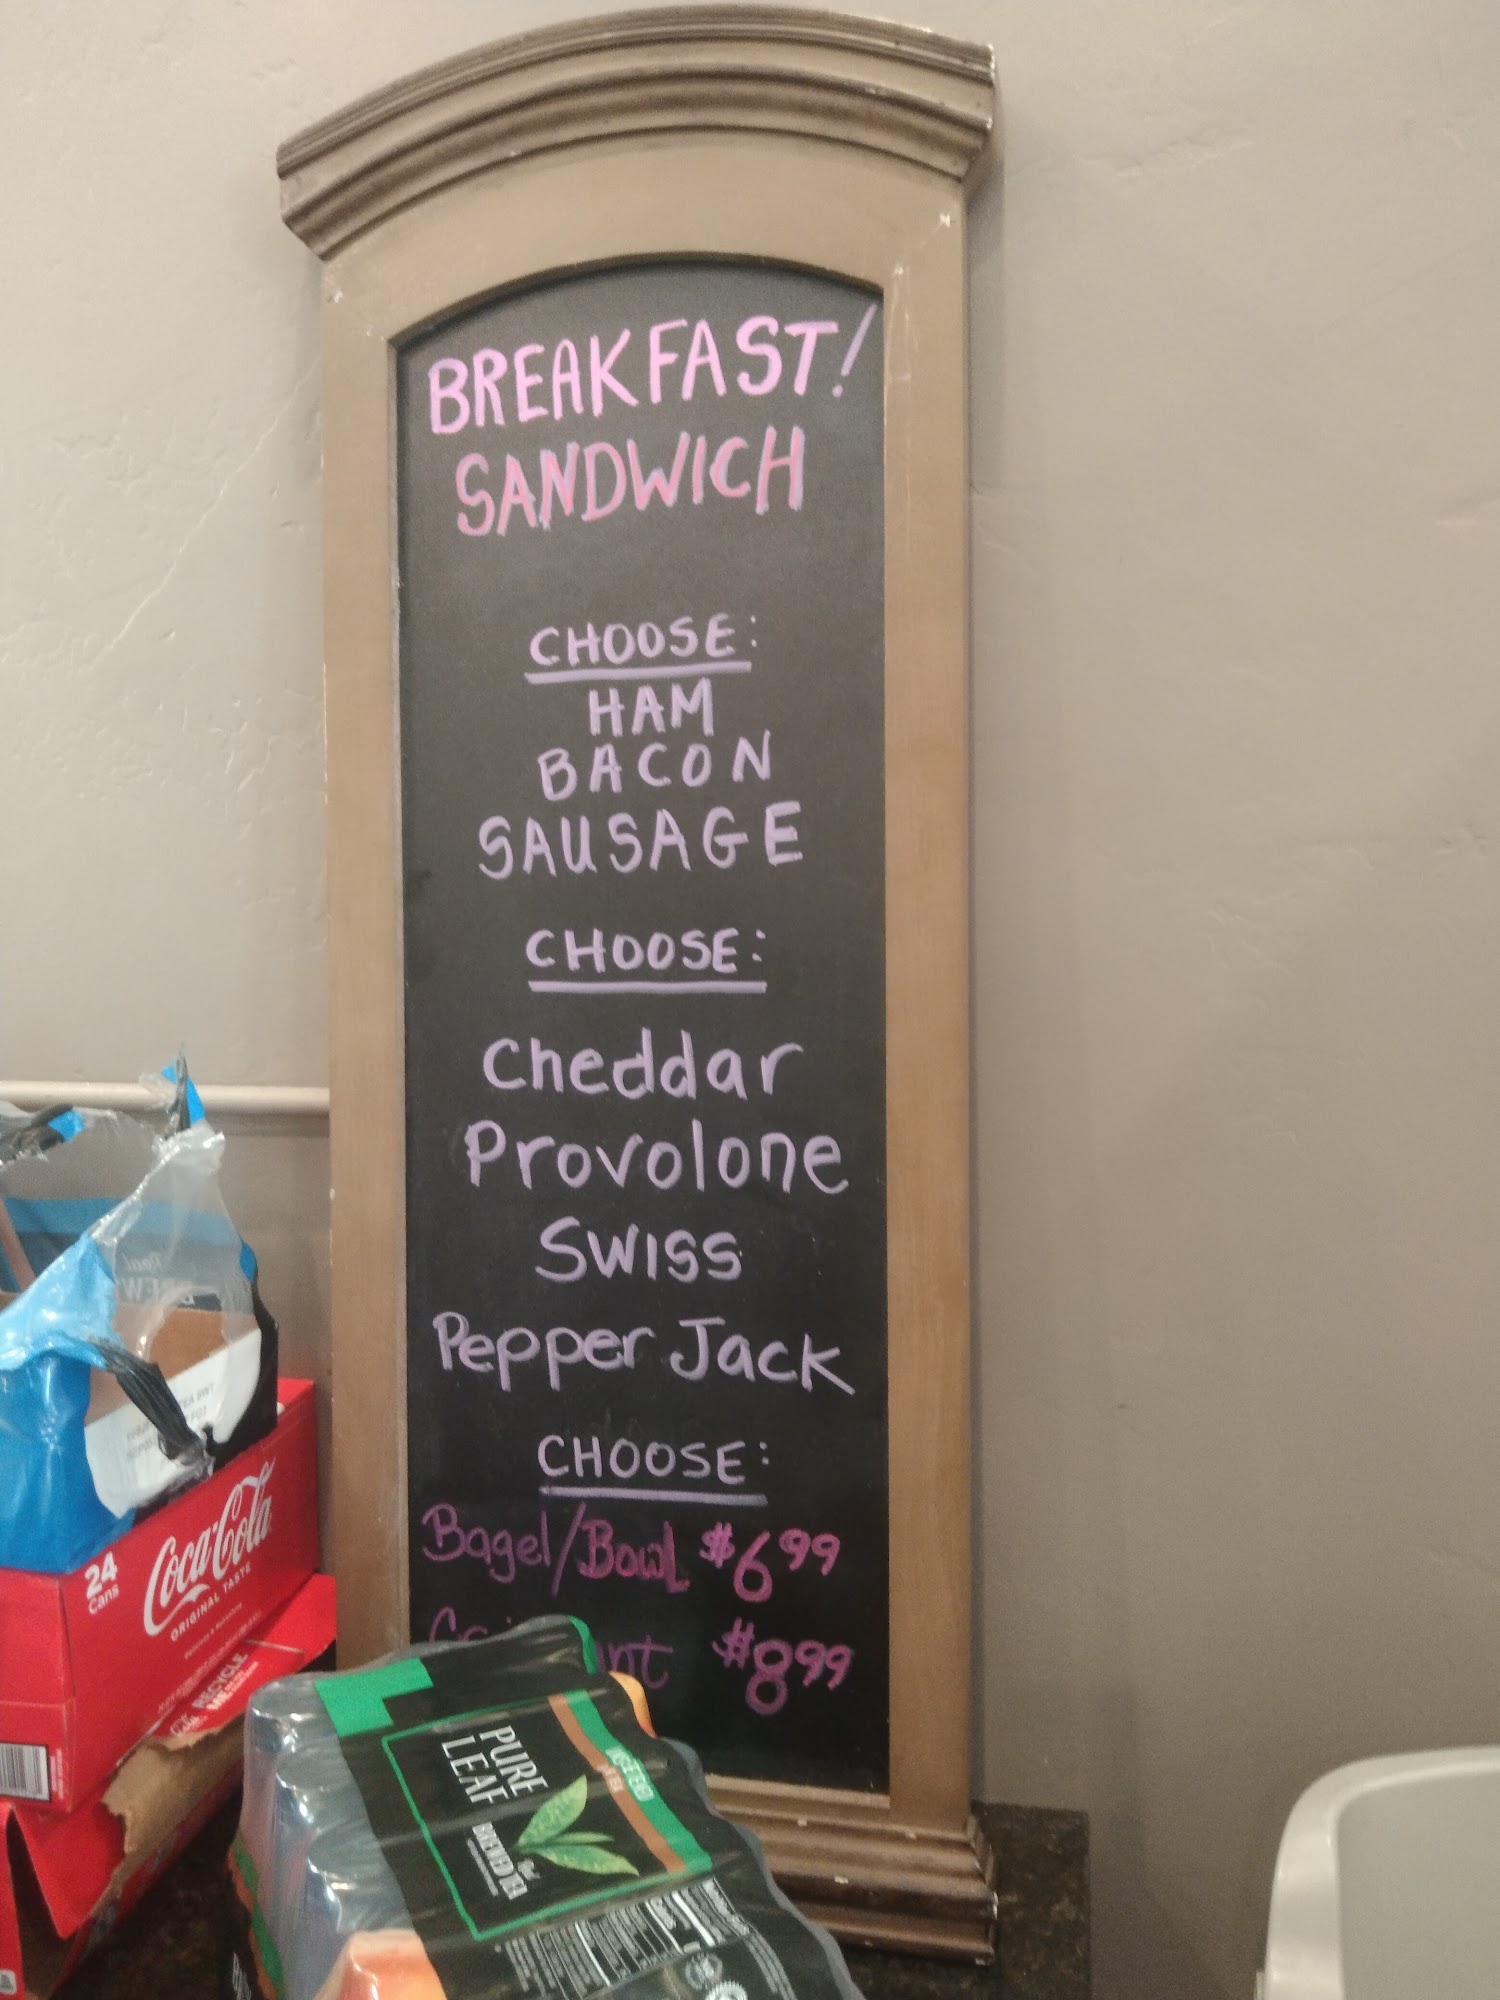 BREAKFAST!
SANDWICH
CHOOSE:
HAM
BACON
SAUSAGE
CHOOSE:
Cheddar
Provolone
SWISS
Pepper Jack
CHOOSE:
Bagel/Bowl $6.99
$8.99
24
Cans
Coca-Cola
ORIGINAL TASTE
RECYCLE
ME
PURE
LEAF
Real
BREWED TEA